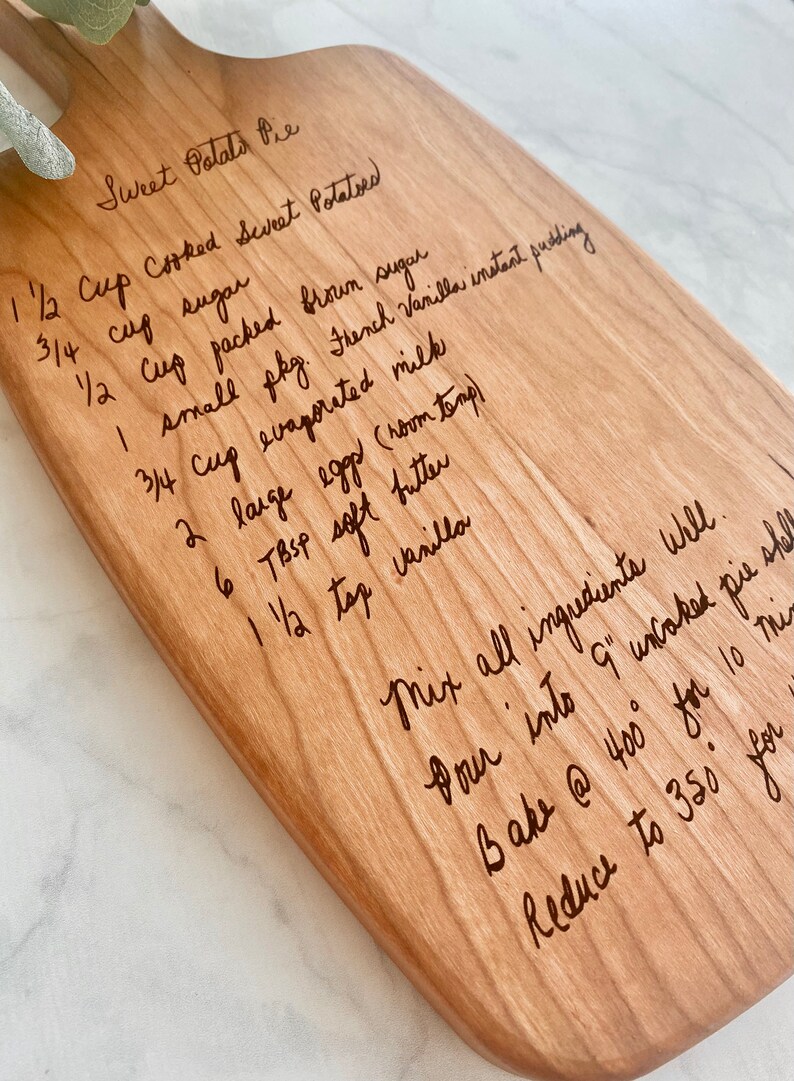 Sweet Potato Pie
1 1/2 Cup Cooked Sweet Potatoes
3/4 cup sugar
1/2 Cup packed brown sugar
1 small pkg. French Vanilla instant pudding
3/4 cup evaporated milk
2 large eggs (room temp)
6 TBSP soft butter
1 1/2 tsp vanilla
Mix all ingredients Well.
Pour into 9" unbaked pie shell
Bake @ 400° for 10 min
Reduce to 350° for